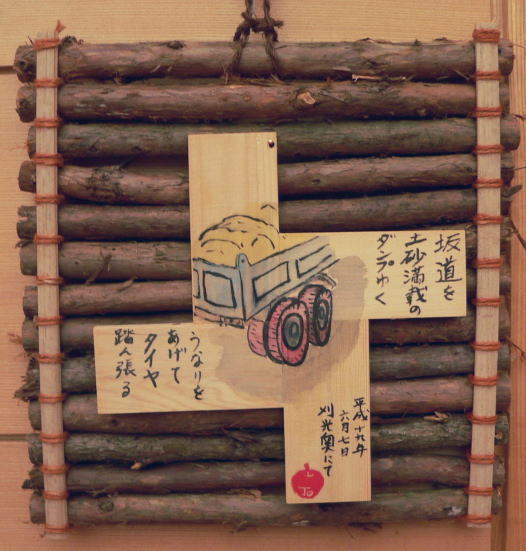 坂道を
土砂満載の
ダンプゆく
うなりを
あげて
タイヤ
踏ん張る
平成十九年
六月七日
刈光奥にて